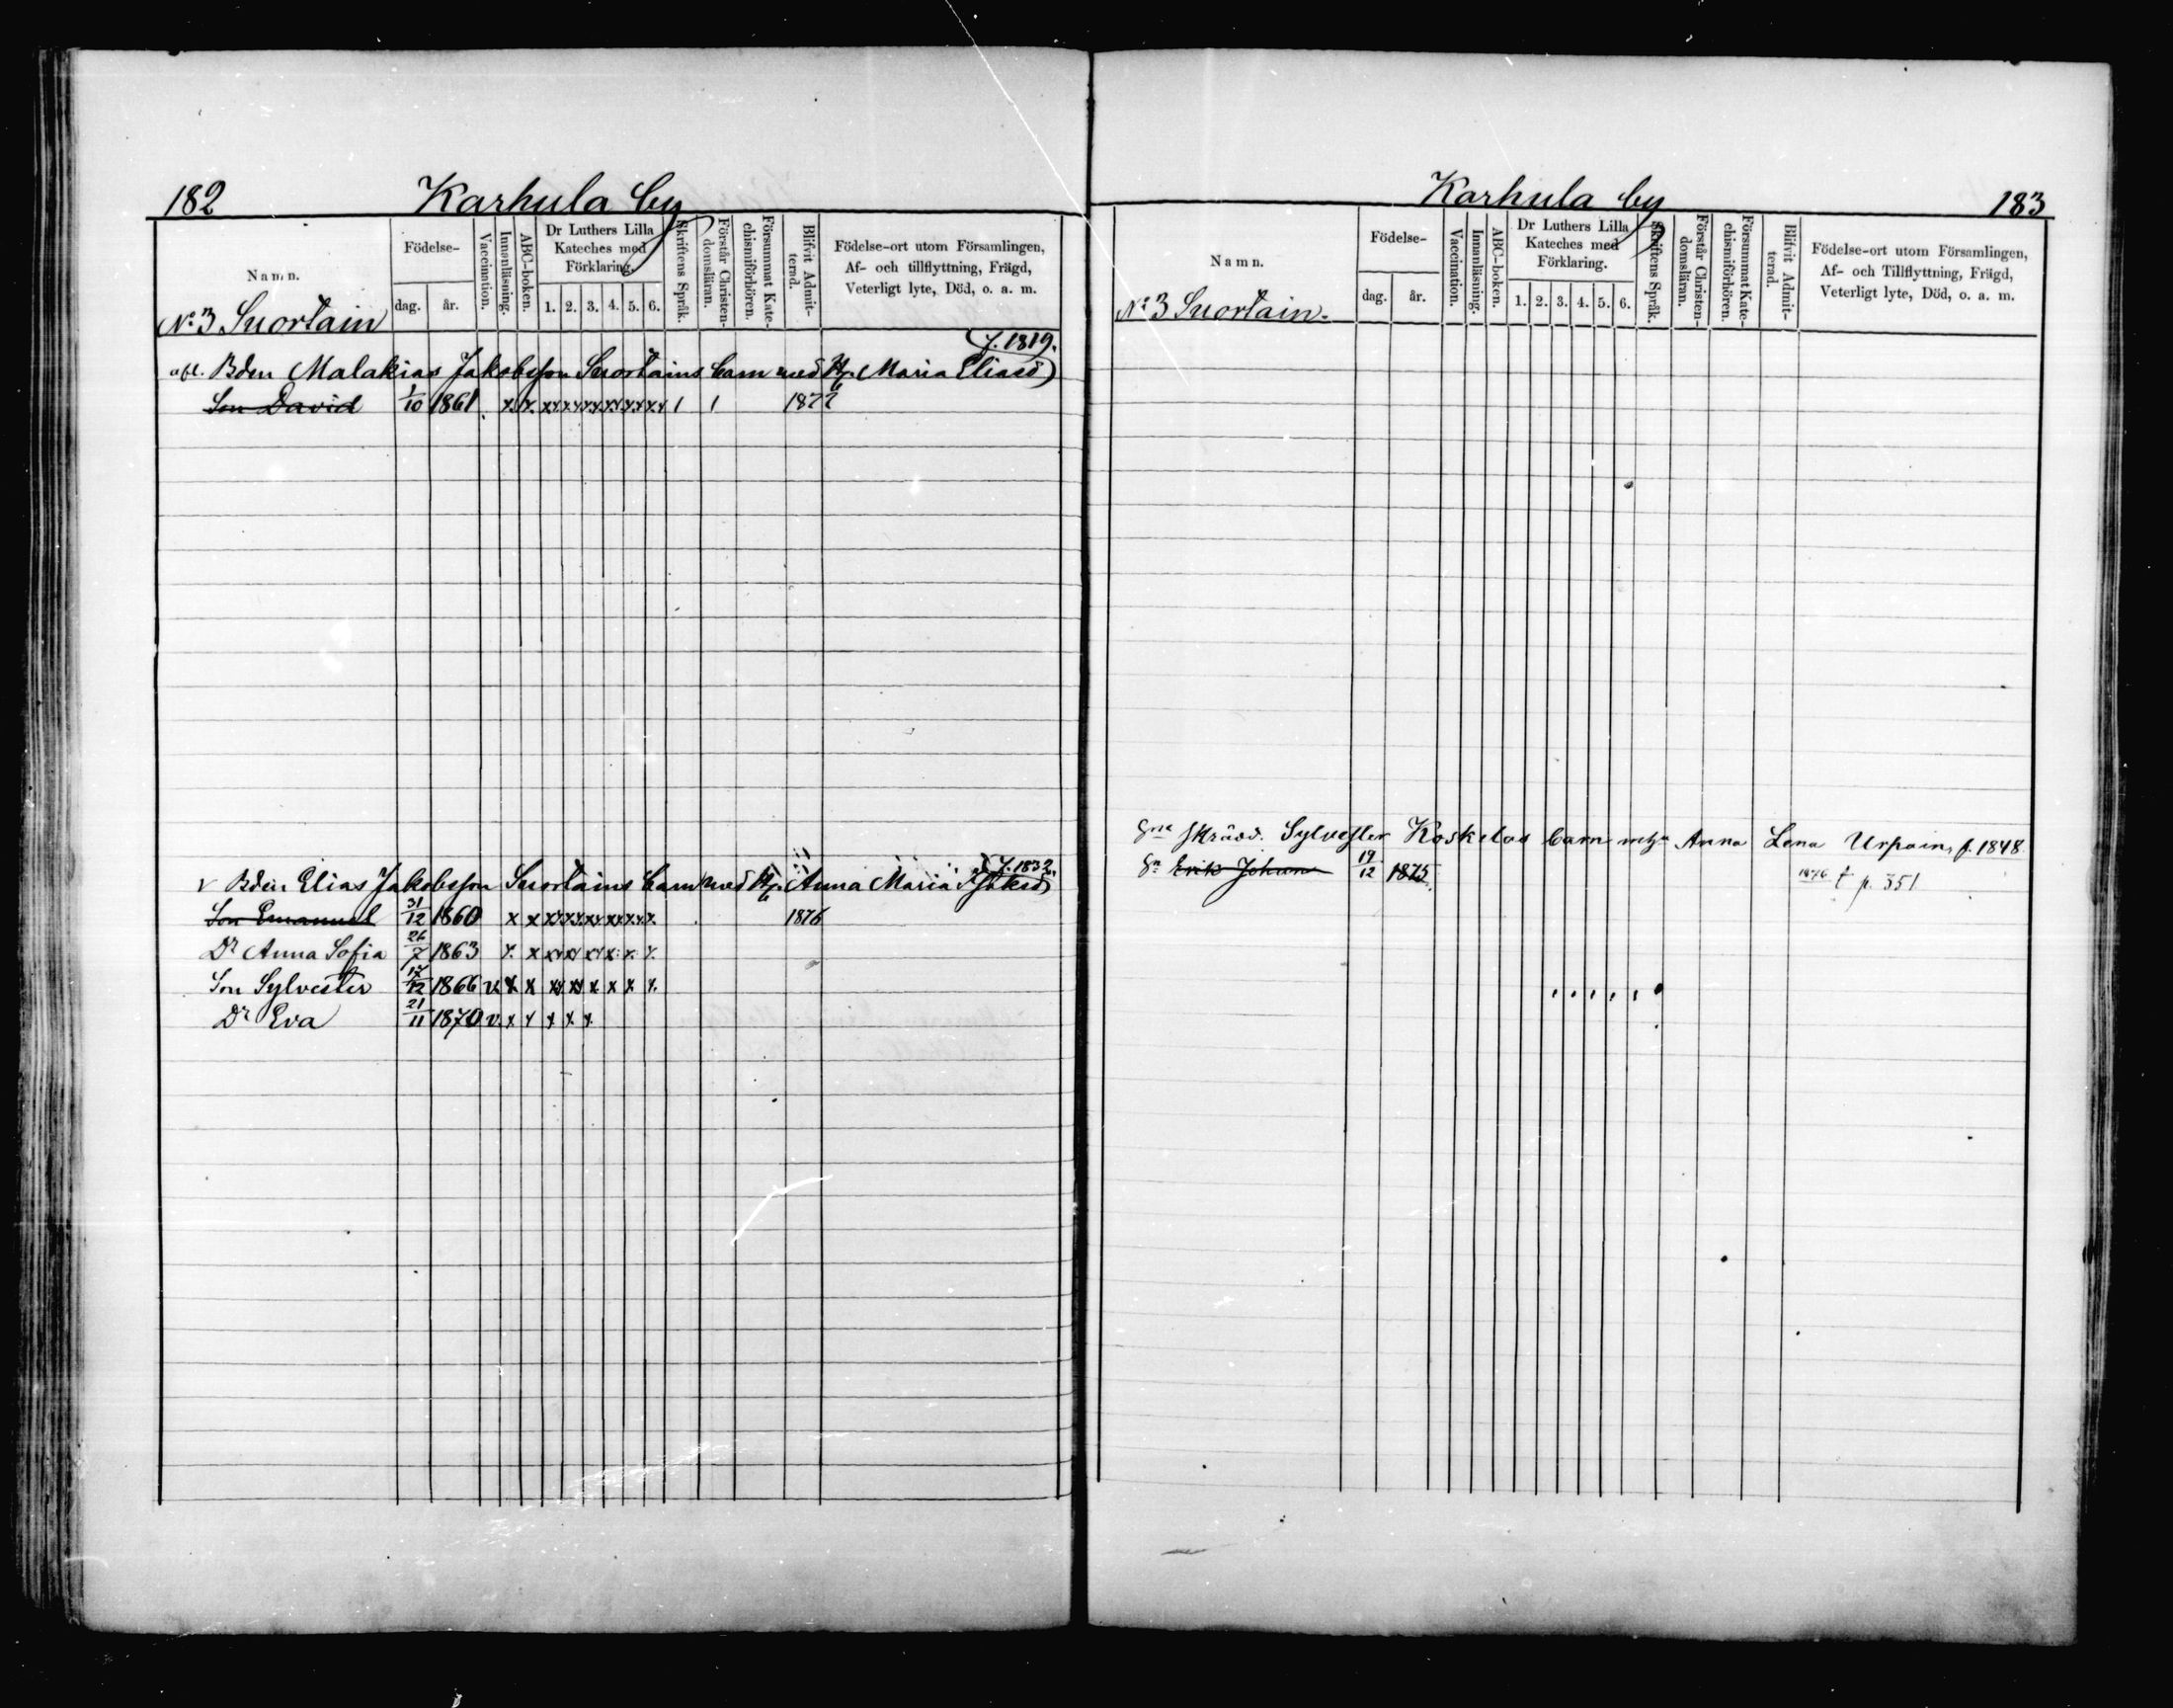 182 Karhula by
Namn. Födelse- dag. år. Vaccination. Innanläsning. ABC-boken. Dr Luthers Lilla Kateches med Förklaring. 1. 2. 3. 4. 5. 6. Skriftens Språk. Förstår Christendomsläran. Försummat Katechismiförhören. Blifvit Admitterad. Födelse-ort utom Församlingen, Af- och tillflyttning, Frägd, Veterligt lyte, Död, o. a. m.
No 3 Suortain
f. 1819.
afl. Bden Malakias Jakobsson Suortains barn med Maria Eliasd)
Son David 1/10 1861 x x xx xx xx xx xx xx 1 1 1877
f. 1832.
v Bden Elias Jakobsson Suortains barn med Anna Maria
Son Emanuel 31/12 1860 x x xx xx xx xx xx x 1876
Dr Anna Sofia 26/7 1863 x x xx xx xx x x x
Son Sylvester 17/12 1866 v. x x xx xx x x x x
Dr Eva 21/11 1870 v. x x x x x
Karhula by 183
Namn. Födelse- dag. år. Vaccination. Innanläsning. ABC-boken. Dr Luthers Lilla Kateches med Förklaring. 1. 2. 3. 4. 5. 6. Skriftens Språk. Förstår Christendomsläran. Försummat Katechismiförhören. Blifvit Admitterad. Födelse-ort utom Församlingen, Af- och Tillflyttning, Frägd, Veterligt lyte, Död, o. a. m.
No 3 Suortain.
Skrädd. Sylvester Koskelas barn Anna Lena Urpain, f. 1848
Sn Erik Johan 19/12 1875 1876 t p. 351